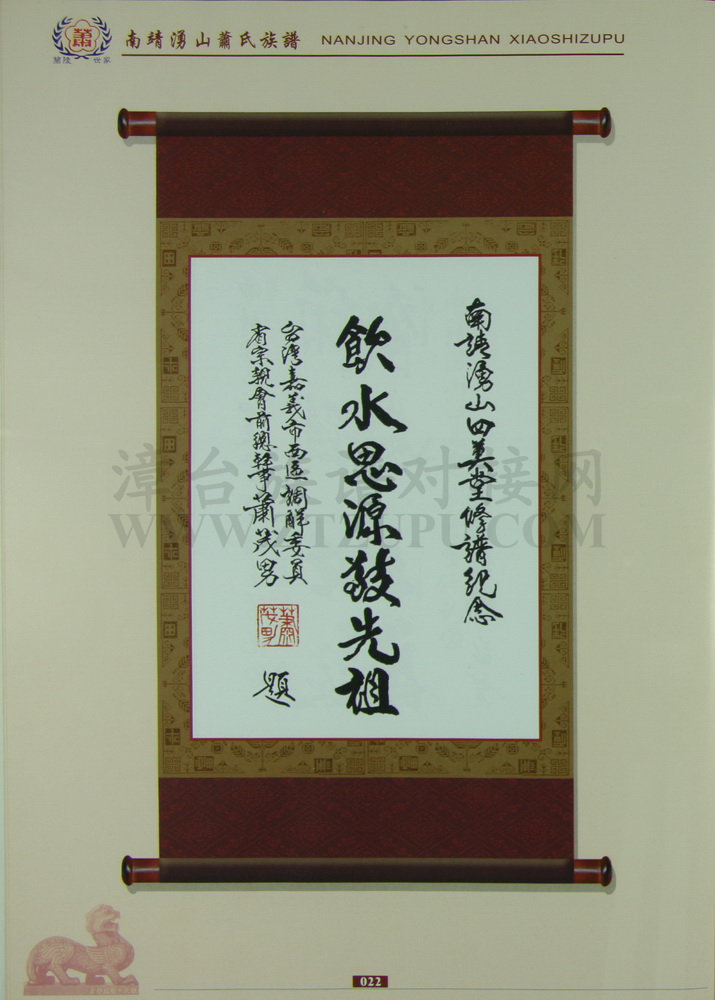 蕭
蘭陵 世家
南靖湧山蕭氏族譜 NANJING YONGSHAN XIAOSHIZUPU
南靖湧山四美堂修譜紀念
飲水思源敬先祖
台灣嘉義市西區調解委員
省宗親會前總幹事蕭茂男
蕭茂男
題
漳台族谱对接网
WWW.ZTZUPU.COM
022